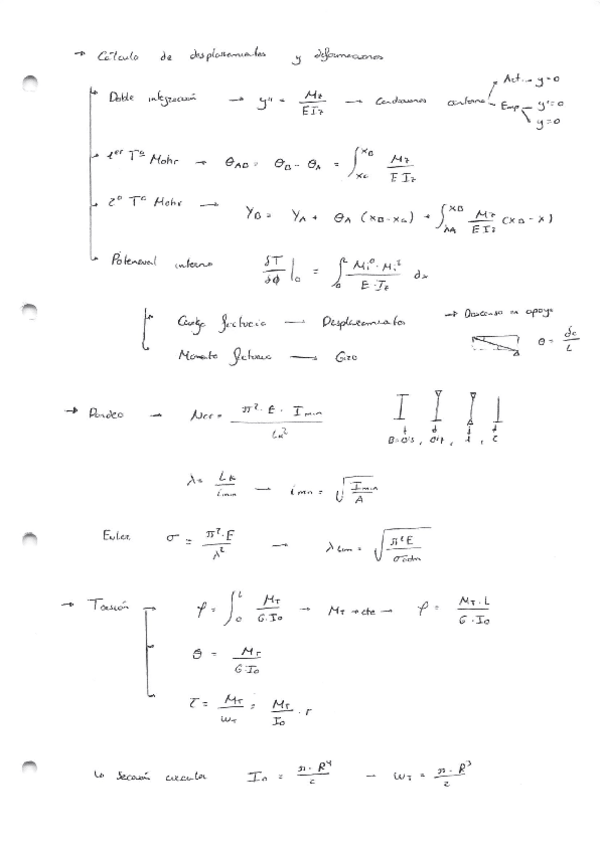 → Cálculo de desplazamientos y deformaciones
Doble integración → y'' = Mz / E Iz → Condiciones contorno Art. → y=0
Emp → y'=0
y=0
1er Tª Mohr → θAB = θB - θA = ∫ Mz / E Iz
2º Tª Mohr → YB = YA + θA (xB-xA) + ∫ Mz / E Iz (xB - x)
Potencial interno δT/δΦ |0 = ∫ Mi⁰·Mi¹ / E·Iz dx
Carga ficticia → Desplazamientos
→ Descenso en apoyo
Momento ficticio → Giro
θ = δc / L
→ Pandeo → Ncr = π²·E·Imin / Lk²
B=0'5, 0'7, 1, 2
λ = Lk / imin → imin = √(Imin / A)
Euler σ = π²·E / λ² → λlim = √(π²E / σadm)
→ Torsión → φ = ∫ MT / G·I0 → MT → cte → φ = MT·L / G·I0
θ = MT / G·I0
τ = MT / WT = MT / I0 · r
↳ Sección circular I0 = π·R⁴ / 2 → WT = π·R³ / 2